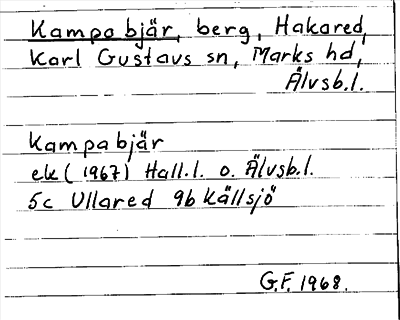 Kampabjär, berg, Hakared,
Karl Gustavs sn, Marks hd,
Älvsb.l.
Kampabjär
ek (1967) Hall.l. o. Älvsb.l.
5c Ullared 9b Källsjö
G.F. 1968.